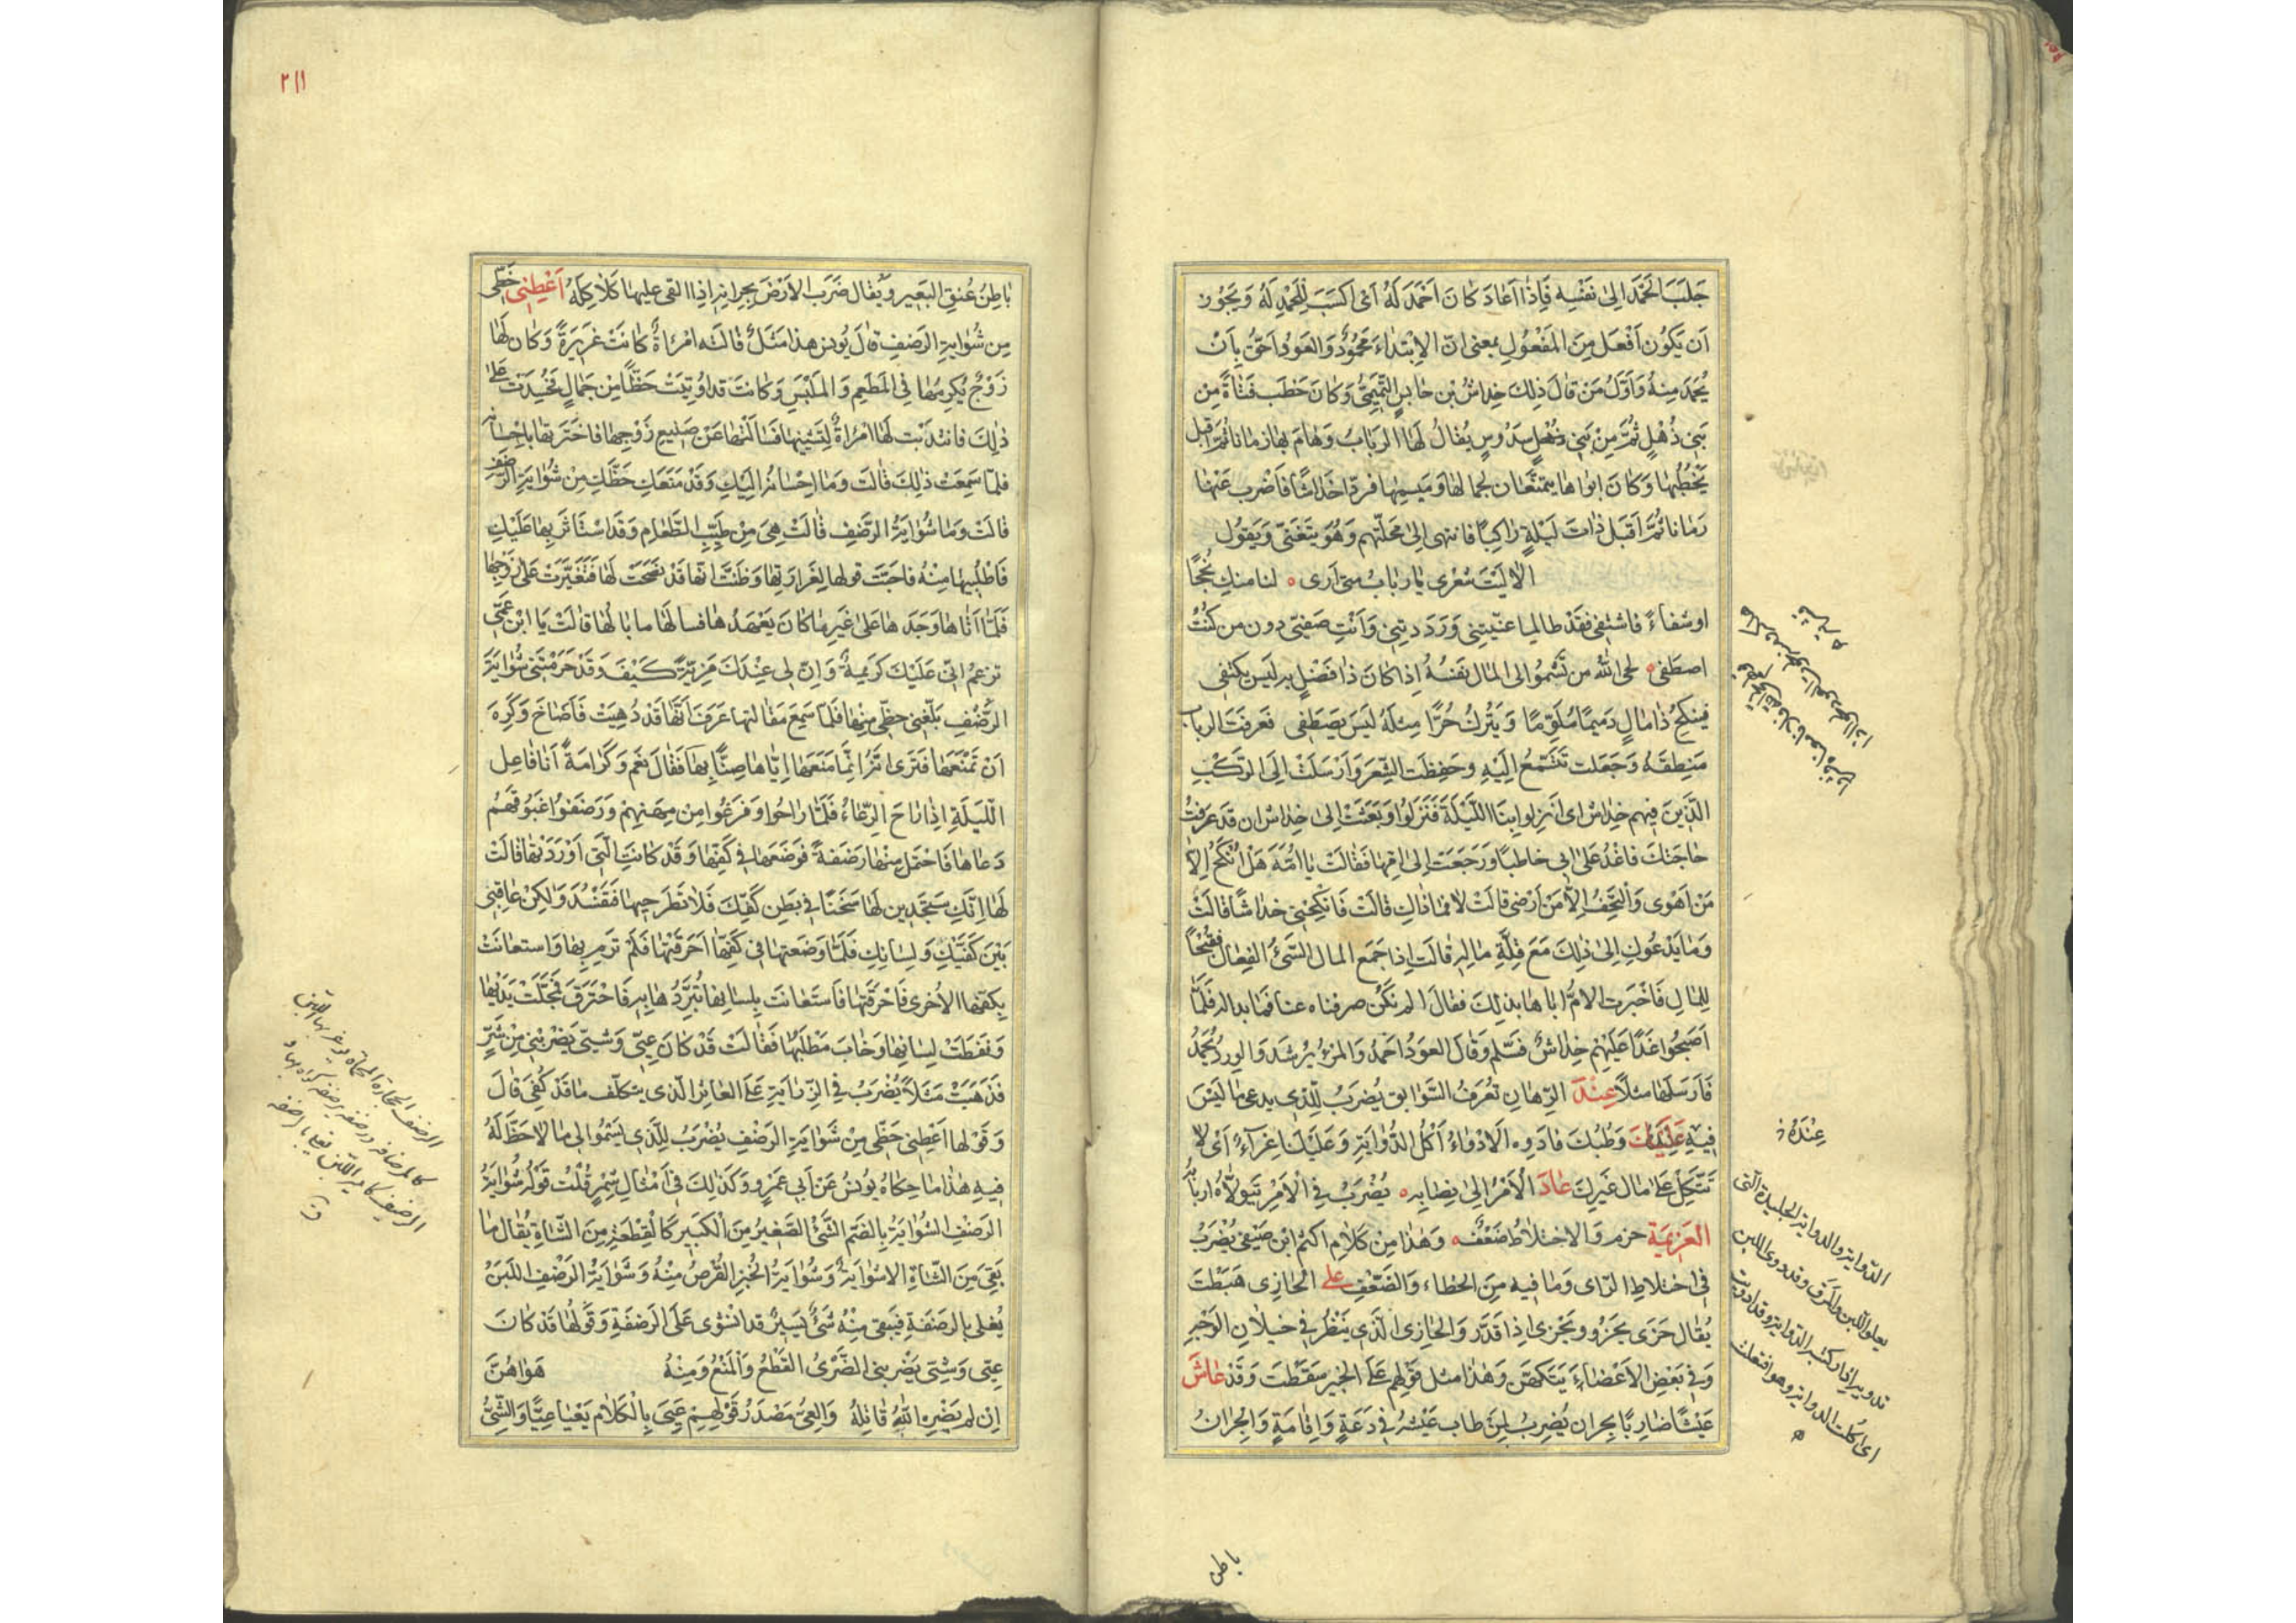 جَلَبَ الحَمْدَ اِلىٰ نَفْسِه فَاِذٰا اَعٰادَ كٰانَ اَحْمَدَ لَهُ اَىْ اَكسَبَ لِلْحَمْدِ لَهُ وَيَجُوزُ
اَن يَكُون اَفْعَل مِنَ المَفْعُولِ بمعنى انّ الاِبْتِدٰاءَ مَحْمُودٌ وَالعَوْدُ اَحَقُّ بِاَنْ
يُحمَدَ مِنهُ وَاَوّلُ مَنْ قٰالَ ذٰلِكَ خِداشُ بْن حٰابِسٍ التَّمِيْمِىُّ وَكٰانَ خَطَب فَتٰاةً مِن
بَنِى ذُهْلٍ ثُمَّ مِنْ بَنِى ذُهْلِ سَدُوسٍ يُقٰالُ لَهٰا الرَبٰابُ وَهٰامَ بِهٰا زمانا ثُمَّ اقبل
يَخْطُبُهٰا وَكٰانَ ابَواهٰا يتمنّعان لجمالهٰا وَمَيسِمِهٰا فردّا خداشًا فَاَضْرب عَنْهٰا
زمانا ثُمَّ اَقبَل ذٰاتَ لَيْلةٍ رٰاكِبًا فانتهى اِلىٰ مَحَلّتهِم وَهُوَ يَتَغَنّى وَيَقولُ
الاٰ لَيْتَ شعرى يٰا رَبٰابُ متى اَرى ٥ لنا منكِ نُجْحًا
او شفاءً فاشتفى فقَدْ طالما عنّيتِنى وَرَدَدتِنِى وَاَنْتِ صَفِيّتى دون من كُنْتُ
اصطَفى ٥ لحى اللّٰهُ من تَسْمُو الى المٰال نفسُهُ اِذٰا كٰانَ ذٰا فَضْلٍ به لَيسَ يكتفى
فينكِحُ ذٰا مٰالٍ دَمِيمًا مُلَوَّمًا وَيَتْرُكُ حُرًّا مِثلَهُ لَيسَ يَصطَفِى فعرفت الرباب
مَنطِقَهُ وَجَعَلت تَتَسمَّعُ اِلَيْهِ وَحَفِظَت الشِعرَ وَاَرْسَلَتْ اِلَى الرَكْبِ
الّذِينَ فِيهم خِداش اى اَنزِلوا بِنَا اللَّيْلَةَ فَنَزَلُوا وَبَعَثَتْ اِلىٰ خِداش ان قد عَرَفتُ
حٰاجَتَكَ فاغْدُ عَلىٰ ابى خاطبًا وَرَجَعَت اِلىٰ امّهٰا فَقٰالَتْ يٰا امَّهَ هَلْ اُنْكَحُ اِلّا
مَنْ اَهْوى وَاَلْتَحِفُ اِلاّ مَن اَرْضى قالَتْ لا فمٰا ذٰاكِ قالَتْ فَانْكِحِينِى خِداشًا قٰالَتْ
وَمٰا يَدْعُوكِ اِلىٰ ذٰلِكَ مَعَ قِلَّةِ مٰالِهِ قٰالَت اِذا جَمَع المال السَّيئُ الفِعٰال فقُبْحًا
لِلمٰالِ فَاَخْبَرت الامُّ ابٰاهٰا بذٰلِكَ فقال الم نَكُنْ صرفناه عنا فمٰا بدا له فَلَمّٰا
اَصبَحُوا غَدا عَلَيْهِم خِداشٌ فسَلّم وَقٰالَ العَودُ اَحْمَدُ وَالمَرْءُ يُرْشَد وَالوِردُ يُحْمَدُ
فَاَرسَلَهٰا مَثَلاً عِنْدَ الرِهٰانِ تُعْرَفُ السَّوابِق يُضرَبُ لِلّذِى يدعى مٰا لَيْسَ
فِيهِ عَلَيكَ وَطْبُكَ فادَوِه الاِدّواءُ اَكْلُ الدُّوٰايَةِ وَعَلَيْكَ اِغرآءً اَى لا
تَتّكِل عَلىٰ مٰال غَيرِكَ عٰادَ الْاَمْرُ اِلىٰ نِصٰابِهِ ٥ يُضْرَبُ فى الْاَمْرِ يَتَولّاهُ اربابُهُ
العَزِيمَة حزم وَالاختِلاٰطُ ضَعْفٌ ٥ وَهٰذٰا مِن كَلاٰمِ اكثم ابْن صَيْفى يُضرَبُ
فى اختلاطِ الرّاى وَمٰا فِيهِ مِنَ الخطٰاءِ وَالضّعْفِ عَلى الحٰازِى هَبَطْتَ
يُقٰال حَزَى يحزُو ويَحْزى اذٰا قَدّر وَالحٰازِى الّذى يَنْظُر فى خِيلاٰن الوَجْهِ
وَفى بَعْضِ الاَعْضٰاءِ يَتَكَهّن وَهٰذا مثل قَولهم عَلىَ الخبِير سَقَطْتَ وَقَدْ عٰاشَ
عَيشًا ضٰارِبًا بجِرانٍ يُضرب لِمَن طاب عَيْشُهُ فى دَعَةٍ وَاِقٰامَةٍ وَالجِرٰانُ
عِنْدَهُ
الدّواية والدواية الجليدة الّتى
تعلو اللبن والمَرَق وقد دوى اللبن
اى اكلت الدواية وهو افتعلت
باطن
٢١١
بٰاطِنُ عُنقِ البَعِير وَيُقٰال ضَرَب الاَرْضَ بجرانِهِ اِذٰا القى عليهٰا كَلاٰكِلَهُ اَعْطِنِى حَظّى
مِن شُوٰايَةِ الرَضفِ قٰالَ يُونس هذا مَثَلٌ قٰالَتْه امْرأةٌ كٰانَتْ غَرِيرَةً وَكٰان لَهٰا
زَوْجٌ يُكرِمُهٰا فى المَطعَمِ وَالمَلْبَسِ وَكٰانَت قد اوُتِيَتْ حَظًّا مِنْ جَمٰالٍ فَحُسِدَتْ عَلىٰ
ذٰلِكَ فانتَدَبَت لَهٰا امْرَاةٌ لِتَشِينهٰا فَسَالَتْهٰا عَنْ صَنِيعِ زَوْجِهٰا فاخبَرَتهٰا بِاِحْسٰانِهِ
فلمّا سَمِعَت ذٰلِكَ قٰالَت وَمٰا اِحْسٰانُهُ اِلَيْكِ وَقَدْ مَنَعَكِ حَظَّكِ مِنْ شُوٰايَةِ الرَضْفِ
قٰالَتْ وَمٰا شُوٰايَةُ الرَضفِ قٰالَتْ هِىَ مِنْ طَيِّبِ الطَّعٰامِ وَقَد اسْتَأثَرَ بِهٰا عَلَيْكِ
فَاطْلُبِيهٰا مِنْهُ فاحبَّت قولها لِغَرٰارَتِهٰا وَظَنَّتْ انّهٰا قَدْ نصَحَتْ لَهٰا فَتَغَيَّرَتْ عَلىٰ زَوْجِهٰا
فَلَمّٰا اَتٰاهٰا وَجَدَهٰا عَلىٰ غَيرِ مٰا كٰانَ يَعْهَدُهٰا فسالَهٰا ما بٰالُهٰا قٰالَتْ يَا ابْن عَمّى
تزعم انّى عَلَيْكَ كَريمةٌ وَانّ لى عِنْدكَ مَزِيّةً كَيْفَ وَقَدْ حَرَمْتَنى شُوٰايَةَ
الرَّضْفِ بَلِّغْنِى حظِّى مِنْهٰا فَلَمّٰا سَمِعَ مَقٰالَتهٰا عَرَفَ اَنّهٰا قَدْ دُهِيَتْ فَاَصٰاخَ وَكَرِهَ
اَنْ تَمْنَعَهٰا فَتَرى انّهُ اِنّمٰا مَنَعَهٰا اِيّٰاهٰا ضِنًّا بِهٰا فَقٰالَ نعَم وَكَرٰامَةً اَنٰا فٰاعِل
اللّيْلَةَ اِذٰا رٰاحَ الرِعٰاءُ فَلَمّٰا رٰاحُوا وَفرَغُوا مِن مِهَنِهِمْ وَرَضَفُوا غَبُوقَهُم
دَعٰاهٰا فَاحْتَمل مِنْهٰا رَضفَةً فوَضَعَهٰا فى كَفّهٰا وَقَدْ كٰانَتِ الَّتى اَوْرَدَتْهٰا قٰالَتْ
لَهٰا اِنّكِ سَتَجدِين لَهٰا سَخَنًا فى بَطن كَفّك فَلاٰ تطْرَحِيهٰا فَتَفْسُدَ وَلٰكِنْ عٰاقِبِى
بَيْن كَفّيْكِ وَلِسٰانِكِ فَلَمّٰا وَضَعتهٰا فى كَفّهٰا اَحرَقَتْهٰا فَلَمْ تَرمِ بِهٰا وَاستعٰانَتْ
بِكَفّهٰا الاُخْرى فَاَحْرَقَتْهٰا فَاستَعٰانَت بِلسٰانِهٰا تُبَرِّدُهٰا بِهِ فَاحْتَرَقَ فمَجَلَتْ يَدٰاهٰا
وَنَفِطَتْ لِسٰانهٰا وَخٰابَ مَطْلَبُهٰا فَقٰالَتْ قَدْ كٰانَ عِيِّى وَشيِّى يَصْرِينى مِنْ شَرٍّ
فَذَهَبَتْ مَثَلاً يُضْرَبُ فى الزِرٰايَةِ عَلَى العٰائِرِ الّذى يتكلّف مٰا قَدْ كُفِىَ قٰالَ
وَقَوْلهٰا اَعْطِنى حَظّى مِنْ شُوٰايَةِ الرَضْفِ يُضْرَبُ لِلّذِى يَسْمُو الى مٰا لاٰ حَظَّ لَهُ
فِيهِ هٰذا مٰا حكٰاهُ يُونُسُ عَنْ اَبى عَمْرٍو وَكَذٰلِكَ فى اَمْثٰالِ شِمْرٍ قُلْت قَوْلُهُ شُوٰايَةُ
الرَضْفِ الشُوٰايَةُ بِالضَّمّ الشَّىْءُ الصَّغِيرُ مِنَ الكَبِير كَالْقِطْعَةِ مِنَ الشّٰاةِ يُقٰال مٰا
بَقِىَ مِنَ الشّٰاةِ الا شُوٰايَةٌ وَشُوٰايَةُ الخُبزِ القُرْصُ مِنْهُ وَشُوٰايَةُ الرَضْفِ اللَبَنُ
يُغلى بِالرضَفَةِ فيبقى مِنْهُ شَىْءٌ يَسِيرٌ قد انْشَوى عَلَى الرضفَةِ وَقَولُهٰا قَدْ كٰانَ
عِيّى وَشِيّى يَصْرينى الصَّرْىُ القَطْعُ وَالْمَنْعُ وَمِنْهُ هَوٰاهُنَّ
اِنْ لم يَصْرِهِ اللّٰهُ قٰاتِلُهُ وَالعِىُّ مَصْدَرُ قَوْلِهِمْ عَيِىَ بِالْكَلاٰم يَعْيٰا عِيًّا وَالشِّىُّ